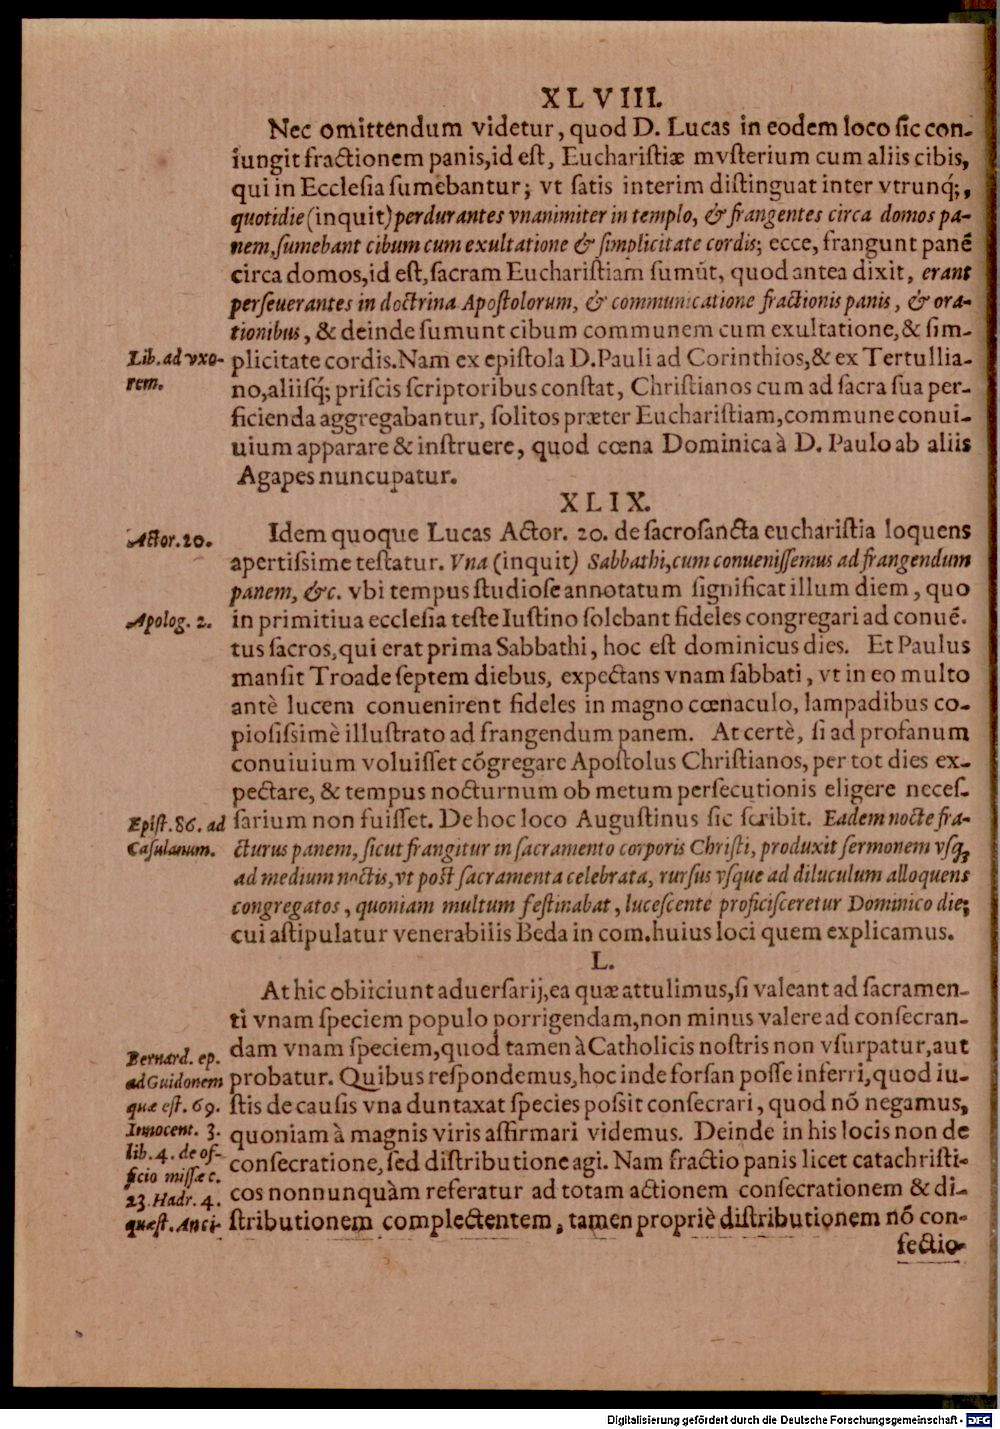 XLVIII.
Nec omittendum videtur, quod D. Lucas in eodem loco ſic con-
iungit fractionem panis, id eſt, Euchariſtiæ myſterium cum aliis cibis,
qui in Eccleſia ſumebantur; vt ſatis interim diſtinguat inter vtrunq́;,
quotidie (inquit) perdurantes vnanimiter in templo, & frangentes circa domos pa-
nem, ſumebant cibum cum exultatione & ſimplicitate cordis; ecce, frangunt panē
circa domos, id eſt, ſacram Euchariſtiam ſumūt, quod antea dixit, erant
perſeuerantes in doctrina Apoſtolorum, & communicatione fractionis panis, & ora-
tionibus, & deinde ſumunt cibum communem cum exultatione, & ſim-
Lib. ad vxo-
rem.
plicitate cordis. Nam ex epiſtola D. Pauli ad Corinthios, & ex Tertullia-
no, aliiſq́; priſcis ſcriptoribus conſtat, Chriſtianos cum ad ſacra ſua per-
ficienda aggregabantur, ſolitos præter Euchariſtiam, commune conui-
uium apparare & inſtruere, quod cœna Dominica à D. Paulo ab aliis
Agapes nuncupatur.
XLIX.
Actor. 20.
Idem quoque Lucas Actor. 20. de ſacroſancta euchariſtia loquens
apertiſsime teſtatur. Vna (inquit) Sabbathi, cum conueniſſemus ad frangendum
panem, &c. vbi tempus ſtudioſe annotatum ſignificat illum diem, quo
Apolog. 2.
in primitiua eccleſia teſte Iuſtino ſolebant fideles congregari ad conuē.
tus ſacros, qui erat prima Sabbathi, hoc eſt dominicus dies. Et Paulus
manſit Troade ſeptem diebus, expectans vnam ſabbati, vt in eo multo
antè lucem conuenirent fideles in magno cœnaculo, lampadibus co-
pioſiſsimè illuſtrato ad frangendum panem. At certè, ſi ad profanum
conuiuium voluiſſet cōgregare Apoſtolus Chriſtianos, per tot dies ex-
pectare, & tempus nocturnum ob metum perſecutionis eligere neceſ-
Epiſt. 86. ad
Caſulanum.
ſarium non fuiſſet. De hoc loco Auguſtinus ſic ſcribit. Eadem nocte fra-
cturus panem, ſicut frangitur in ſacramento corporis Chriſti, produxit ſermonem vſq;
ad medium noctis, vt poſt ſacramenta celebrata, rurſus vſque ad diluculum alloquens
congregatos, quoniam multum feſtinabat, luceſcente proficiſceretur Dominico die;
cui aſtipulatur venerabilis Beda in com. huius loci quem explicamus.
L.
At hic obiiciunt aduerſarij, ea quæ attulimus, ſi valeant ad ſacramen-
ti vnam ſpeciem populo porrigendam, non minus valere ad conſecran-
dam vnam ſpeciem, quod tamen à Catholicis noſtris non vſurpatur, aut
Bernard. ep.
ad Guidonem
quæ eſt. 69.
Innocent. 3.
lib. 4. de of-
ficio miſſæ c.
23. Hadr. 4.
quæſt. Anci-
probatur. Quibus reſpondemus, hoc inde forſan poſſe inferri, quod iu-
ſtis de cauſis vna duntaxat ſpecies poſsit conſecrari, quod nō negamus,
quoniam à magnis viris affirmari videmus. Deinde in his locis non de
conſecratione, ſed diſtributione agi. Nam fractio panis licet catachriſti-
cos nonnunquàm referatur ad totam actionem conſecrationem & di-
ſtributionem complectentem, tamen propriè diſtributionem nō con-
fectio-
Digitalisierung gefördert durch die Deutsche Forschungsgemeinschaft - DFG